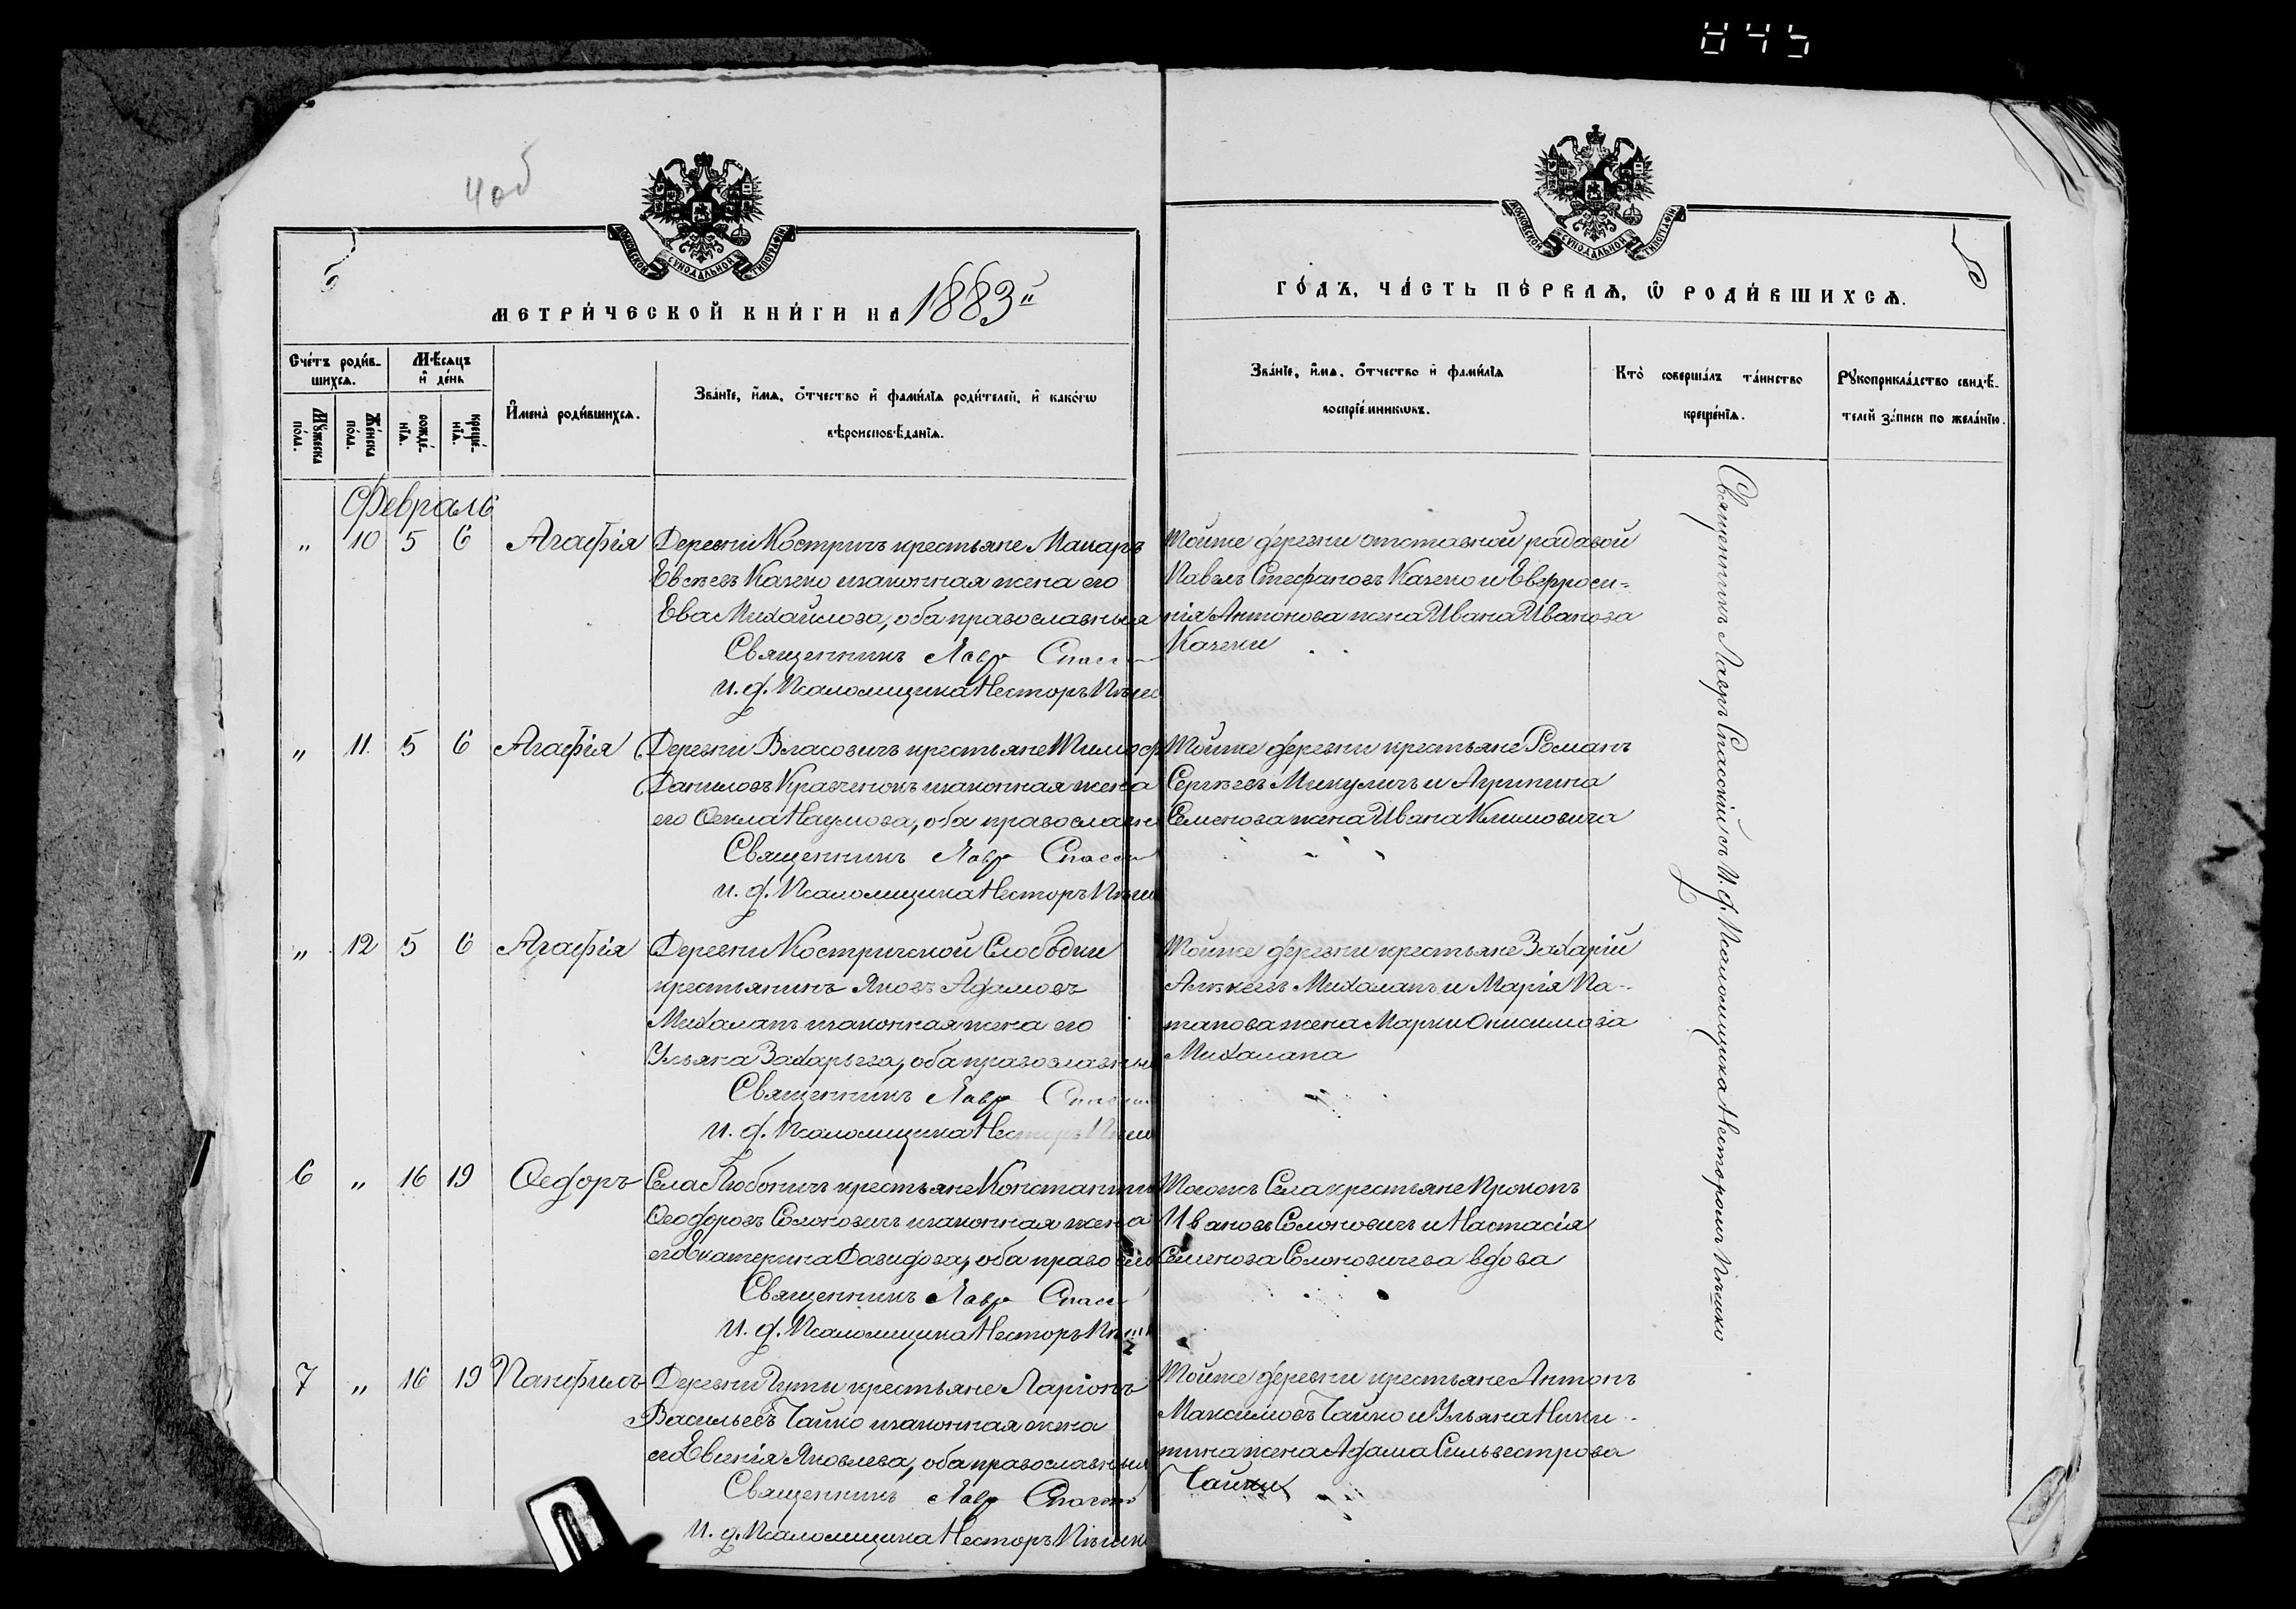 845
4 об
5
МОСКОВСКОЙ СѴНОДАЛЬНОЙ ТИПОГРАФІИ
МЕТРИ́ЧЕСКОЙ КНИ́ГИ НА 1883й
Сче́тъ роди́в-
шихсѧ.
Мѣ́сѧцъ
и҆ де́нь
Мꙋ́жеска
по́ла.
Же́нска
по́ла.
рожде́-
нїѧ.
креще́-
нїѧ.
И҆мена̀ роди́вшихсѧ.
Зва́нїе, и҆́мѧ, ѻ҆́тчество и҆ фами́лїѧ роди́телей, и҆ како́гѡ
вѣроисповѣ́данїѧ.
Февраль
" 10 5 6 Агафія Деревни Костричъ крестьяне Макаръ
Евсѣевъ Качено изаконная жена его
Ева Михайлова, оба православныя
Священникъ Лавръ
И. д. Псаломщика Несторъ
" 11. 5 6 Агафія Деревни Власовичъ крестьяне Тимоф
Даниловъ Кравченокъ изаконная жена
его Ѳекла Наумова, оба православн
Священникъ Лавръ
и. д. Псаломщика Несторъ
" 12 5 6 Агафія Деревни Костричской Слободки
крестьянинъ Яковъ Адамовъ
Михалапъ изаконная жена его
Ульяна Захарьева, оба православны
Священникъ Лавръ
И. д. Псаломщика Несторъ
6 " 16 19 Ѳедоръ Села Любоничъ крестьяне Константинъ
Ѳеодоровъ Солоновичъ изаконная жена
его Екатерина Давидова, оба право
Священникъ Лавръ
И. д. Псаломщика Несторъ
7 " 16 19 Панфилъ Деревни Гуты крестьяне Ларіонъ
Васильевъ Чайко изаконная жена
его Евгенія Яковлева, оба православныя
Священникъ Лавръ
И. д. Псаломщика Несторъ Пѣшко
5
МОСКОВСКОЙ СѴНОДАЛЬНОЙ ТИПОГРАФІИ
ГО́ДЪ, ЧА́СТЬ ПЕ́РВАѦ, Ѽ РОДИ́ВШИХСѦ.
Зва́нїе, и҆́мѧ, ѻ҆́тчество и҆ фами́лїѧ
воспрїе́мникѡвъ.
Кто̀ соверша́лъ та́инство
креще́нїѧ.
Рꙋкоприкла́дство свидѣ́-
телей за́писи по жела́нїю.
Тойже деревни отставной рядовой
Павелъ Стефановъ Качено и Евфроси-
нія Антонова жена Ивана Иванова
Качени
Тойже деревни крестьяне Романъ
Сергѣевъ Микуличъ и Агрипина
Семенова жена Ивана Климовича
Тойже деревни крестьяне Захарій
Алексѣевъ Михалапъ и Марія По-
тапова жена Марки Онисимова
Михалапа
Тогожъ Села крестьяне Прокопъ
Ивановъ Солоновичъ и Настасія
Семенова Солоновичева вдова
Тойже деревни крестьяне Антонъ
Максимовъ Чайко и Ульяна Ники-
тина жена Адама Сильвестрова
Чайки
Священникъ Лавръ Спасскій съ И. д. Псаломщика Несторомъ Пѣшко